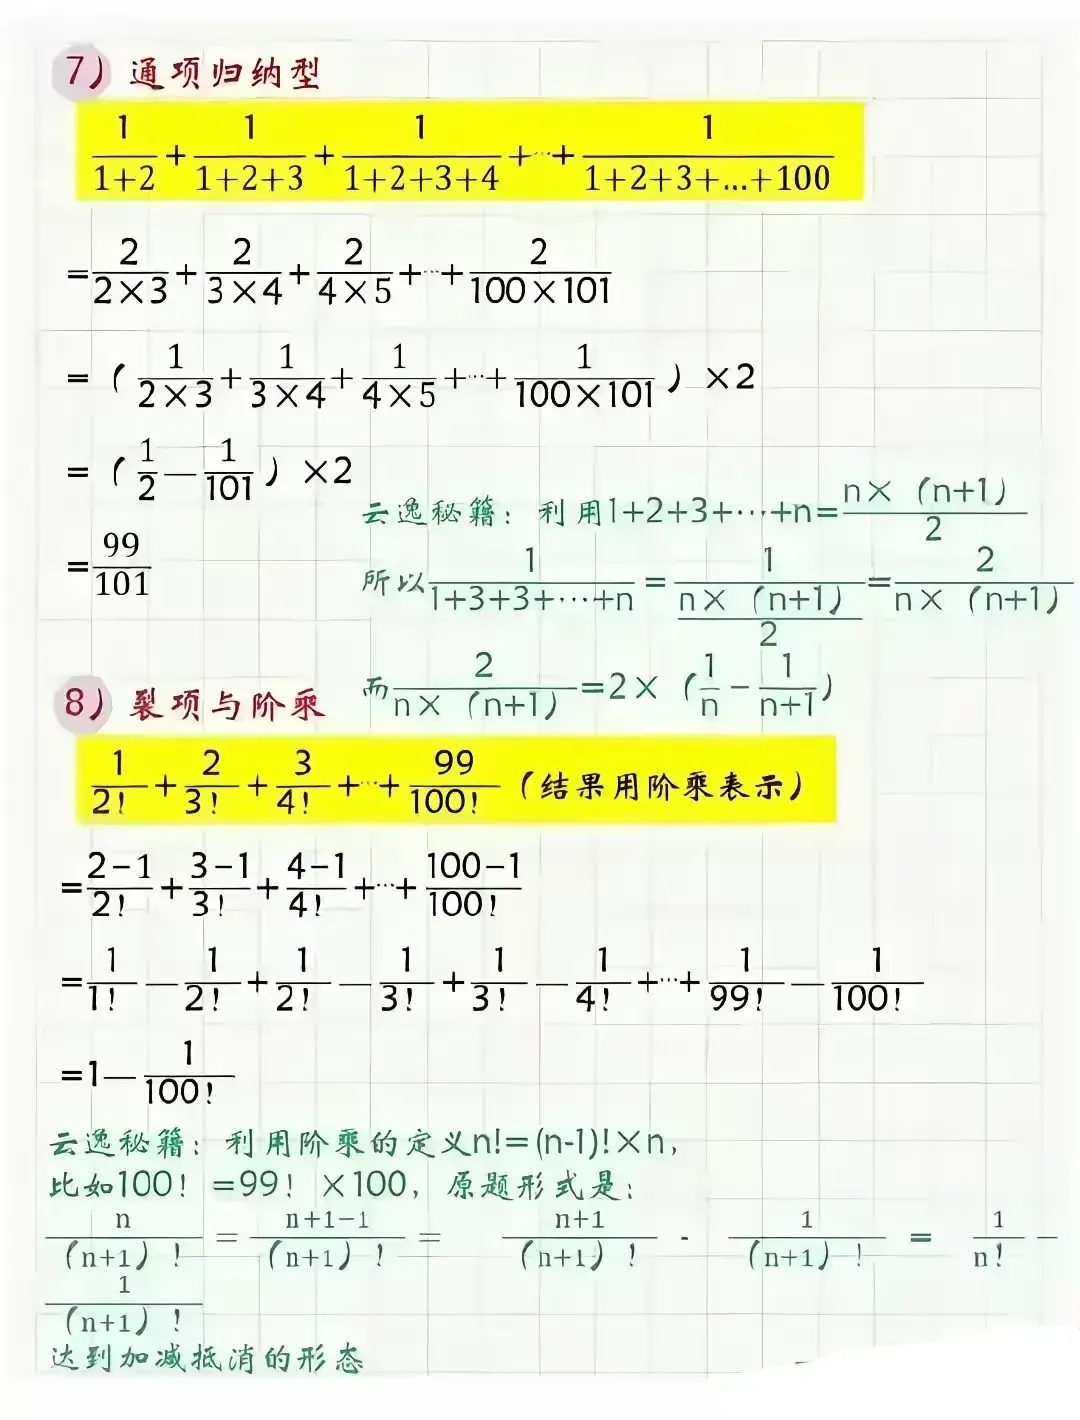 7）通项归纳型
1/(1+2)+1/(1+2+3)+1/(1+2+3+4)+…+1/(1+2+3+...+100)
=2/(2×3)+2/(3×4)+2/(4×5)+…+2/(100×101)
=（1/(2×3)+1/(3×4)+1/(4×5)+…+1/(100×101)）×2
=（1/2—1/101）×2
=99/101
云逸秘籍：利用1+2+3+…+n=n×（n+1）/2
所以1/(1+3+3+…+n)=1/(n×（n+1）/2)=2/(n×（n+1）)
而2/(n×（n+1）)=2×（1/n-1/(n+1)）
8）裂项与阶乘
1/2!+2/3!+3/4!+…+99/100!（结果用阶乘表示）
=(2-1)/2!+(3-1)/3!+(4-1)/4!+…+(100-1)/100!
=1/1!—1/2!+1/2!—1/3!+1/3!—1/4!+…+1/99!—1/100!
=1—1/100!
云逸秘籍：利用阶乘的定义n!=(n-1)!×n,
比如100！=99！×100，原题形式是：
n/(n+1)！=(n+1-1)/(n+1)！=(n+1)/(n+1)！-1/(n+1)！=1/n!—
1/(n+1)！
达到加减抵消的形态